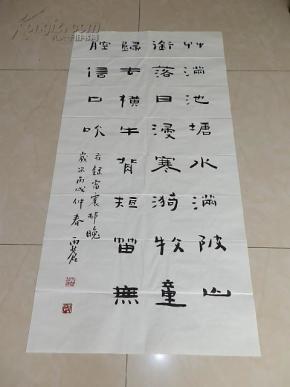 草满池塘水满陂山
衔落日浸寒漪牧童
归去横牛背短笛無
腔信口吹
右録雷震邨晚
歲次丙戌仲春